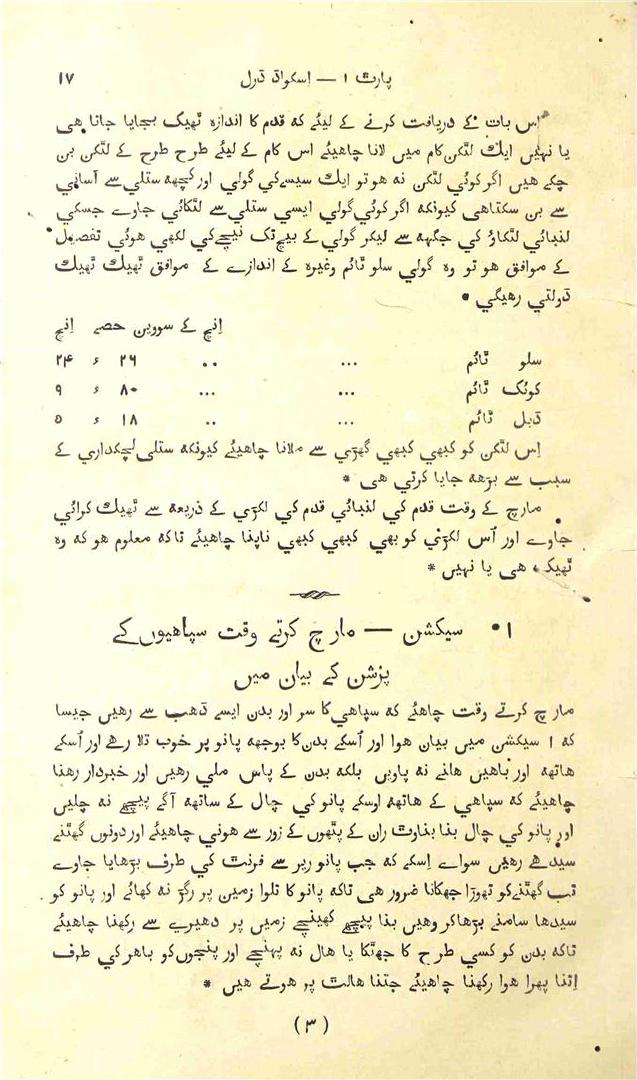 پارٹ ۱ — اسکواڈ ڈرل ۱۷
اِس بات کے دریافت کرنے کے لیئے کہ قدم کا اندازہ ٹھیک بجایا جاتا هی
یا نہیں ایک لٹکن کام میں لانا چاهیئے اس کام کے لیئے طرح طرح کے لٹکن بن
چکے هیں اگر کوئی لٹکن نہ هو تو ایک سیسے کی گولی اور کچھہ ستلی سے آسانی
سے بن سکتاهی کیونکہ اگر کوئی گولی ایسی ستلی سے لٹکائی جاوے جسکی
لنبائی لٹکاؤ کی جگہہ سے لیکر گولی کے بیچ تک نیچے کی لکھی هوئی تفصیل
کے موافق هو تو وہ گولی سلو ٹائم وغیرہ کے اندازے کے موافق ٹھیک ٹھیک
ڈولتی رهیگی •
اِنچ کے سوویں حصے اِنچ
سلو ٹائم ... .. ۲٦ ء ۲۴
کوئک ٹائم ... ... ۸۰ ء ۹
ڈبل ٹائم ... .. ۱۸ ء ۵
اِس لٹکن کو کبھی کبھی گھڑی سے ملانا چاهیئے کیونکہ ستلی لچکداری کے
سبب سے بڑھہ جایا کرتی هی *
مارچ کے وقت قدم کی لنبائی قدم کی لکڑی کے ذریعہ سے ٹھیک کرائی
جاوے اور اُس لکڑی کو بھی کبھی کبھی ناپنا چاهیئے تاکہ معلوم هو کہ وہ
ٹھیک هی یا نہیں *
۱۰ سیکشن — مارچ کرتے وقت سپاهیوں کے
پزشن کے بیان میں
مارچ کرتے وقت چاهئے کہ سپاهی کا سر اور بدن ایسے ڈھب سے رهیں جیسا
کہ ۱ سیکشن میں بیان هوا اور اُسکے بدن کا بوجھہ پانو پر خوب تلا رهے اور اُسکے
هاتھہ اور باهیں هلنے نہ پاویں بلکہ بدن کے پاس ملی رهیں اور خبردار رهنا
چاهیئے کہ سپاهی کے هاتھہ اوسکے پانو کی چال کے ساتھہ آگے پیچھے نہ چلیں
اور پانو کی چال بنا بناوٹ ران کے پٹھوں کے زور سے هونی چاهیئے اور دونوں گھٹنے
سیدهے رهیں سواے اِسکے کہ جب پانو ریر سے فرنٹ کی طرف بڑهایا جاوے
تب گھٹنے کو تھوڑا جھکانا ضرور هی تاکہ پانو کا تلوا زمین پر رگڑ نہ کھائے اور پانو کو
سیدها سامنے بڑهاکر وهیں بنا پیچھے کھینچے زمیں پر دهیرے سے رکھنا چاهیئے
تاکہ بدن کو کسی طرح کا جھٹکا یا هال نہ پہنچے اور پنجوں کو باهر کی طرف
اِتنا پھرا هوا رکھنا چاهیئے جتنا هالٹ پر هوتے هیں *
( ۳ )